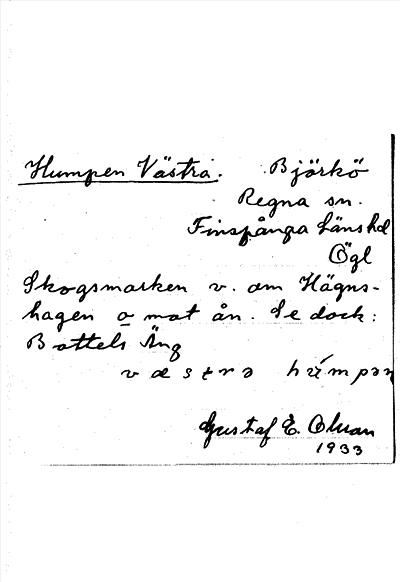 Humpen Västra. Björkö
Regna sn.
Finspånga länshd
Ögl
Skogsmarken v. om Hägns-
hagen o mot ån. Se dock:
Bottels Äng
væstrə hu̇mpən
Gustaf E. Olman
1933